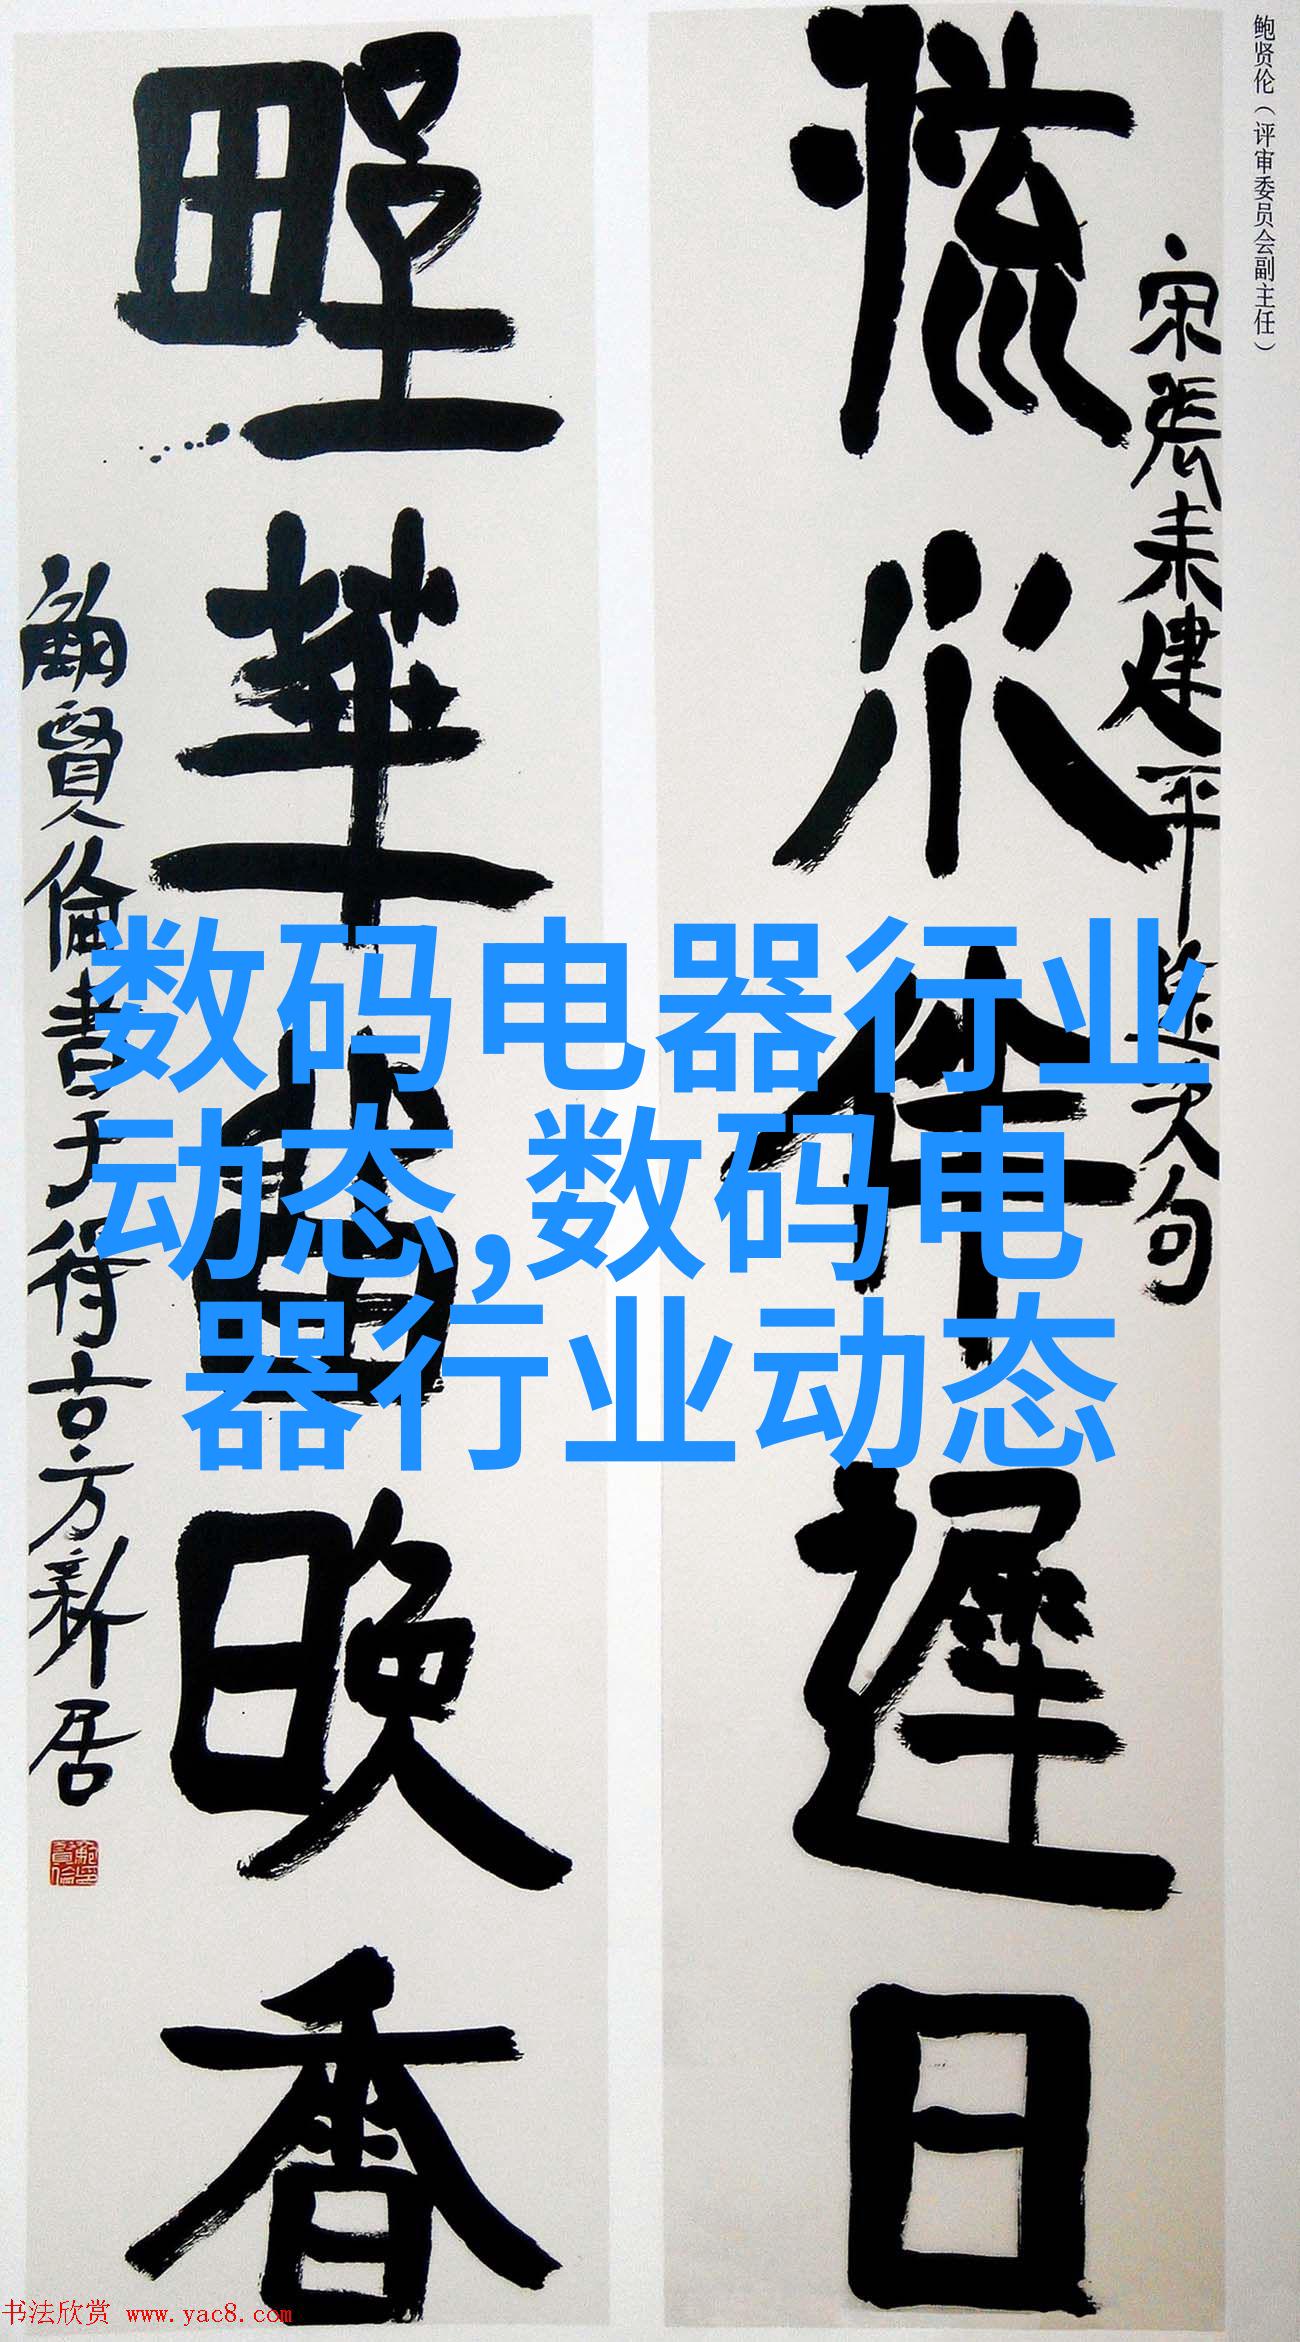 鲍贤伦（评审委员会副主任）
宋张耒建平途次句
流水伴遲日
野華曲晚香
鮑賢倫書于得古方新居
数码电器行业
动态,数码电
器行业动态
书法欣赏 www.yac8.com